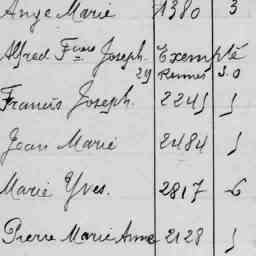 Ange Marie 1380 3
Alfred Fcois Joseph. Exempté
29 Rennes S.O
Francis Joseph. 2245 5
Jean Marie 2484 5
Marie Yves. 2817 6
Pierre Marie Anne 2128 5